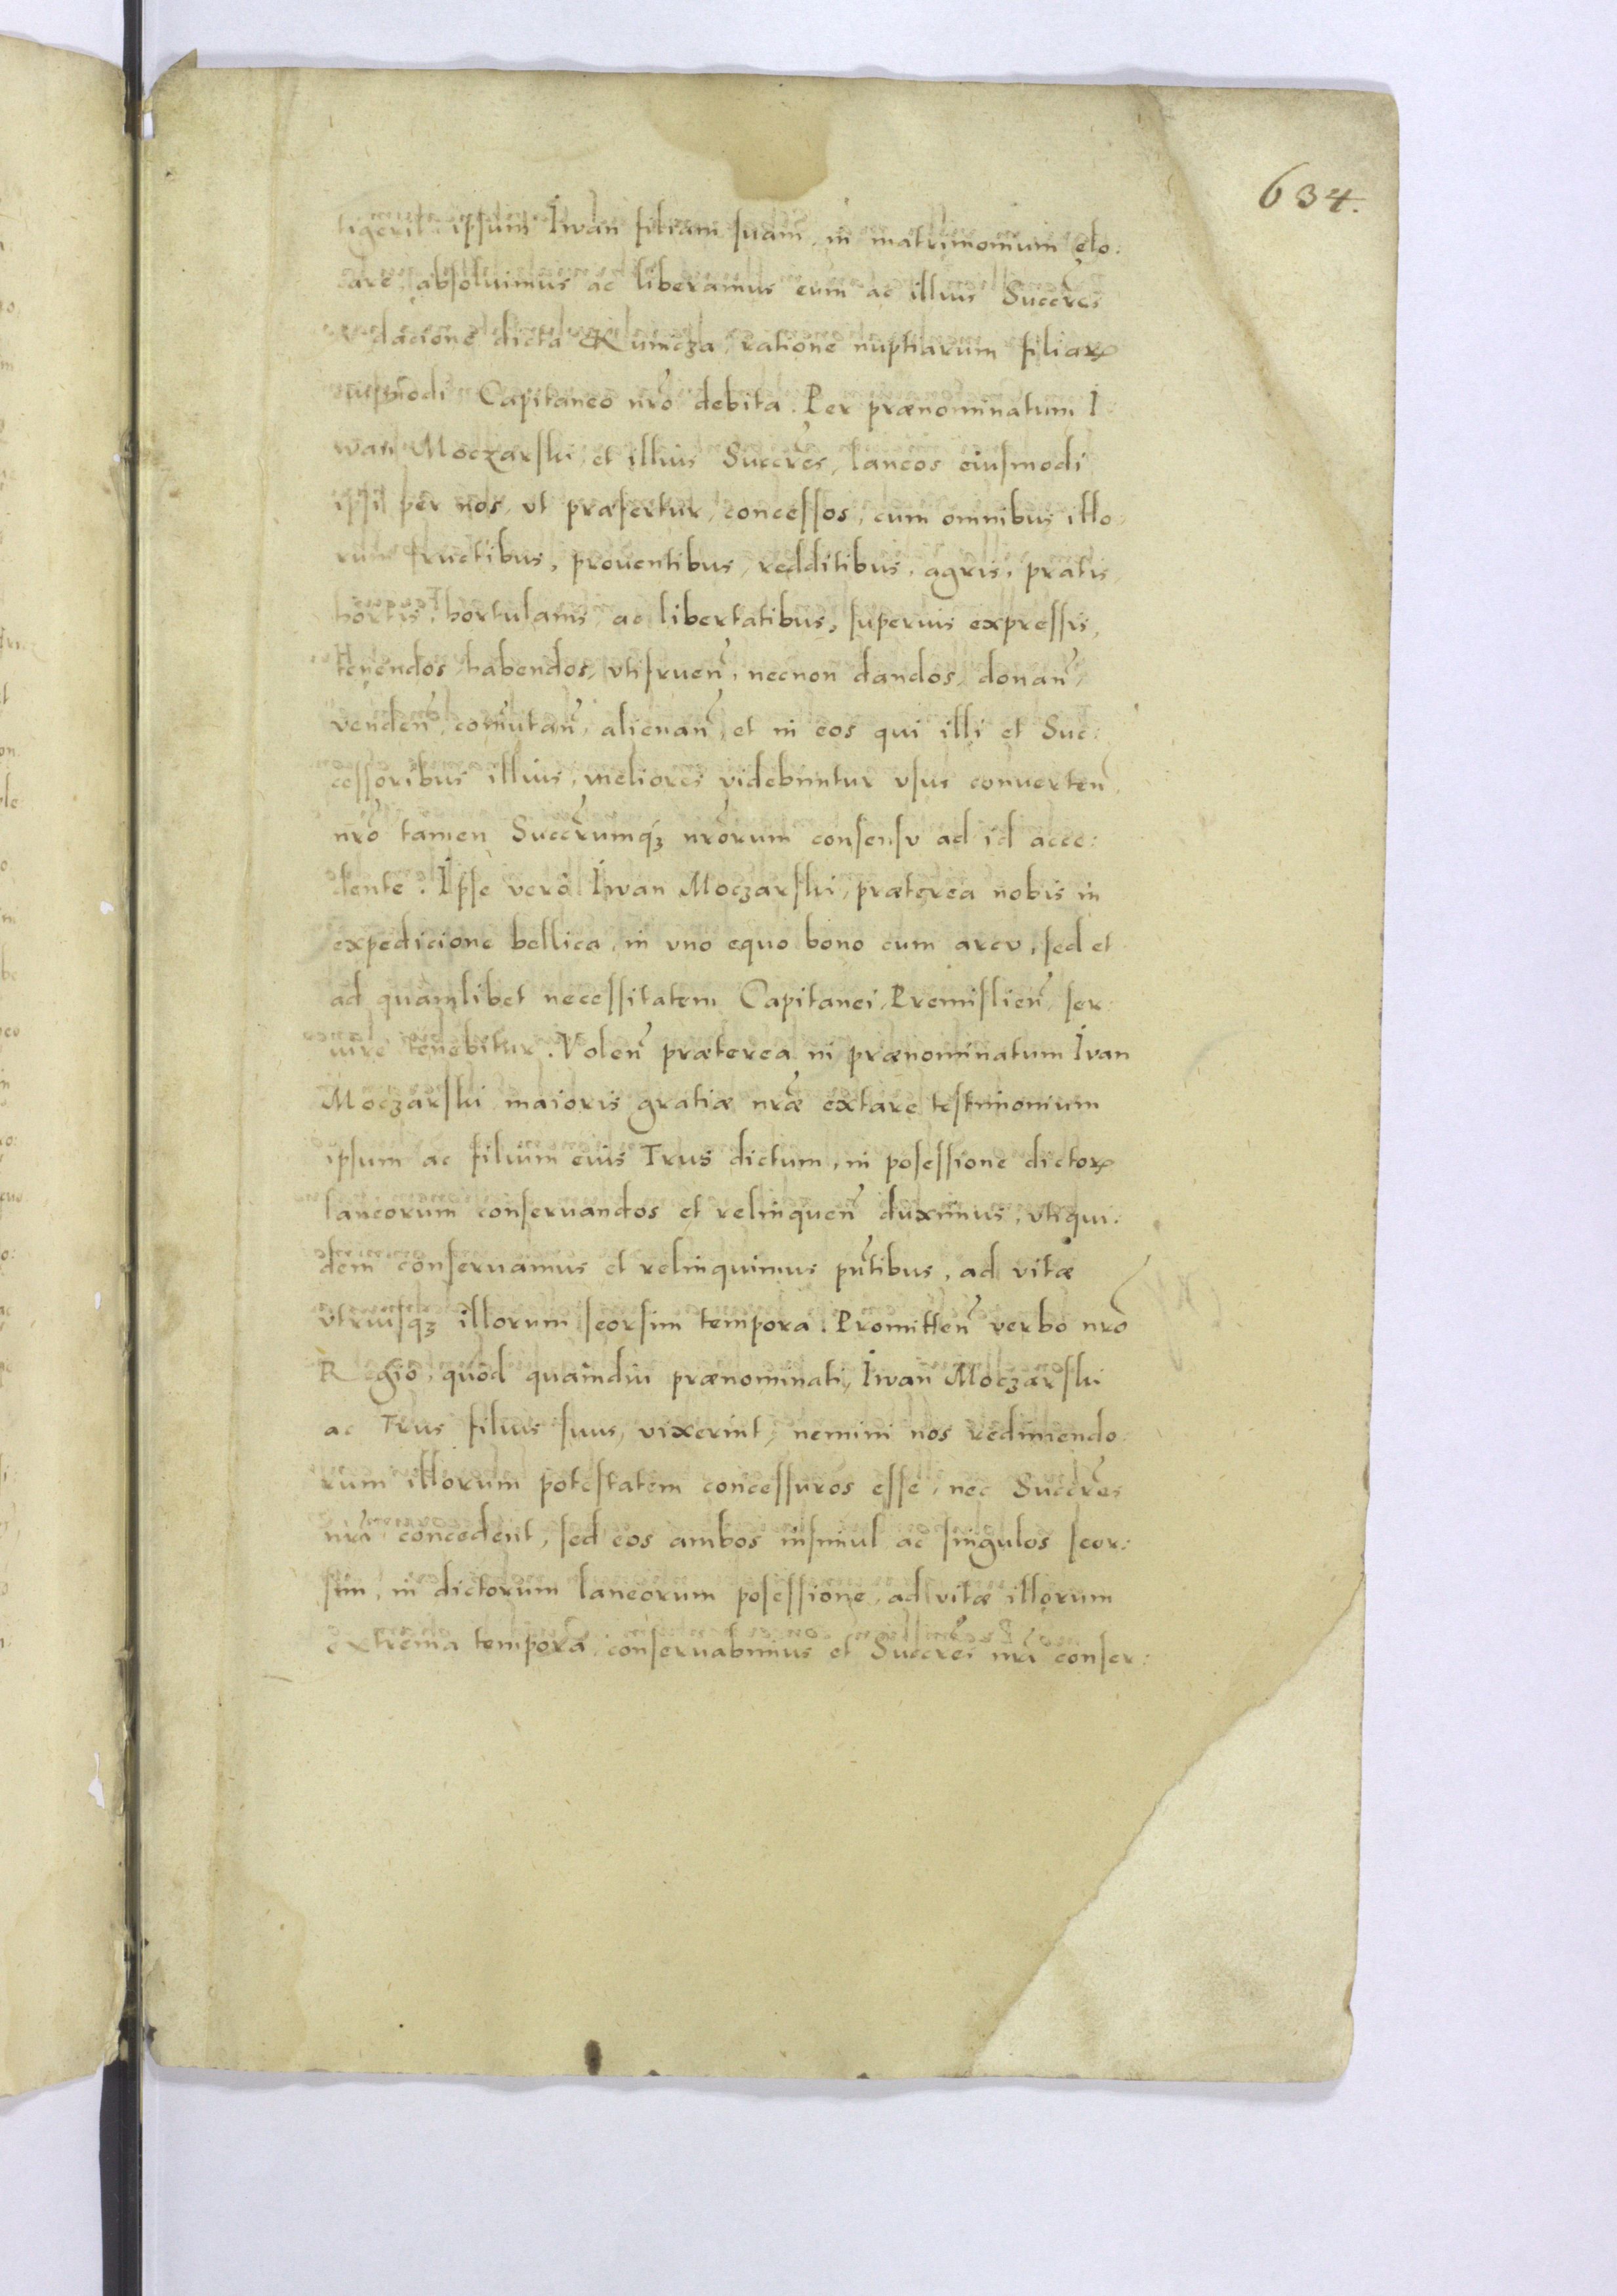 634.
tigerit ipsum Iwan filiam suam, in matrimonium elo:
care, absoluimus ac liberamus eum ac illius Succr̃es
dacione dicta Kumcza, ratione nuptiarum filiarꝝ
eiusmodi Capitaneo nr̃o debita. Per prænominatum I
wan Moczarski, et illius Succr̃es, laneos eiusmodi
ipsi per nos, vt præfertur, concessos, cum omnibus illo:
rum fructibus, prouentibus, redditibus, agris, pratis,
hortis, hortulanis ac libertatibus, superius expressis,
tenendos, habendos, vtifruen̄, necnon dandos, donan̄,
venden̄, com̄utan̄, alienan̄, et in eos qui illi et Suc:
cessoribus illius, meliores videbuntur vsus conuerten̄,
nr̃o tamen Succr̃umqꝫ nr̃orum consensu ad id acce:
dente. Ipse verò Iwan Moczarski, præterea nobis in
expedicione bellica, in vno equo bono cum arcu, sed et
ad quamlibet necessitatem Capitanei Premislien̄, ser:
uire tenebitur. Volen̄ præterea in prænominatum Ivan
Moczarski maioris gratiæ nr̃æ extare testimonium
ipsum ac filium eius Trus dictum, in posessione dictorꝝ
laneorum conseruandos et relinquen̄ duximus, vtiqui:
dem conseruamus et relinquimus pn̄tibus, ad vitæ
vtriusqꝫ illorum seorsim tempora. Promitten̄ verbo nr̃o
Regio, quòd quamdiu prænominati, Iwan Moczarski
ac Trus filius suus, vixerint, nemini nos redimendo:
rum illorum potestatem concessuros esse, nec Succr̃es
nr̃i concedent, sed eos ambos insimul ac singulos seor:
sim, in dictorum laneorum posessione, ad vitæ illorum
extrema tempora, conseruabimus et Succr̃es nr̃i conser: